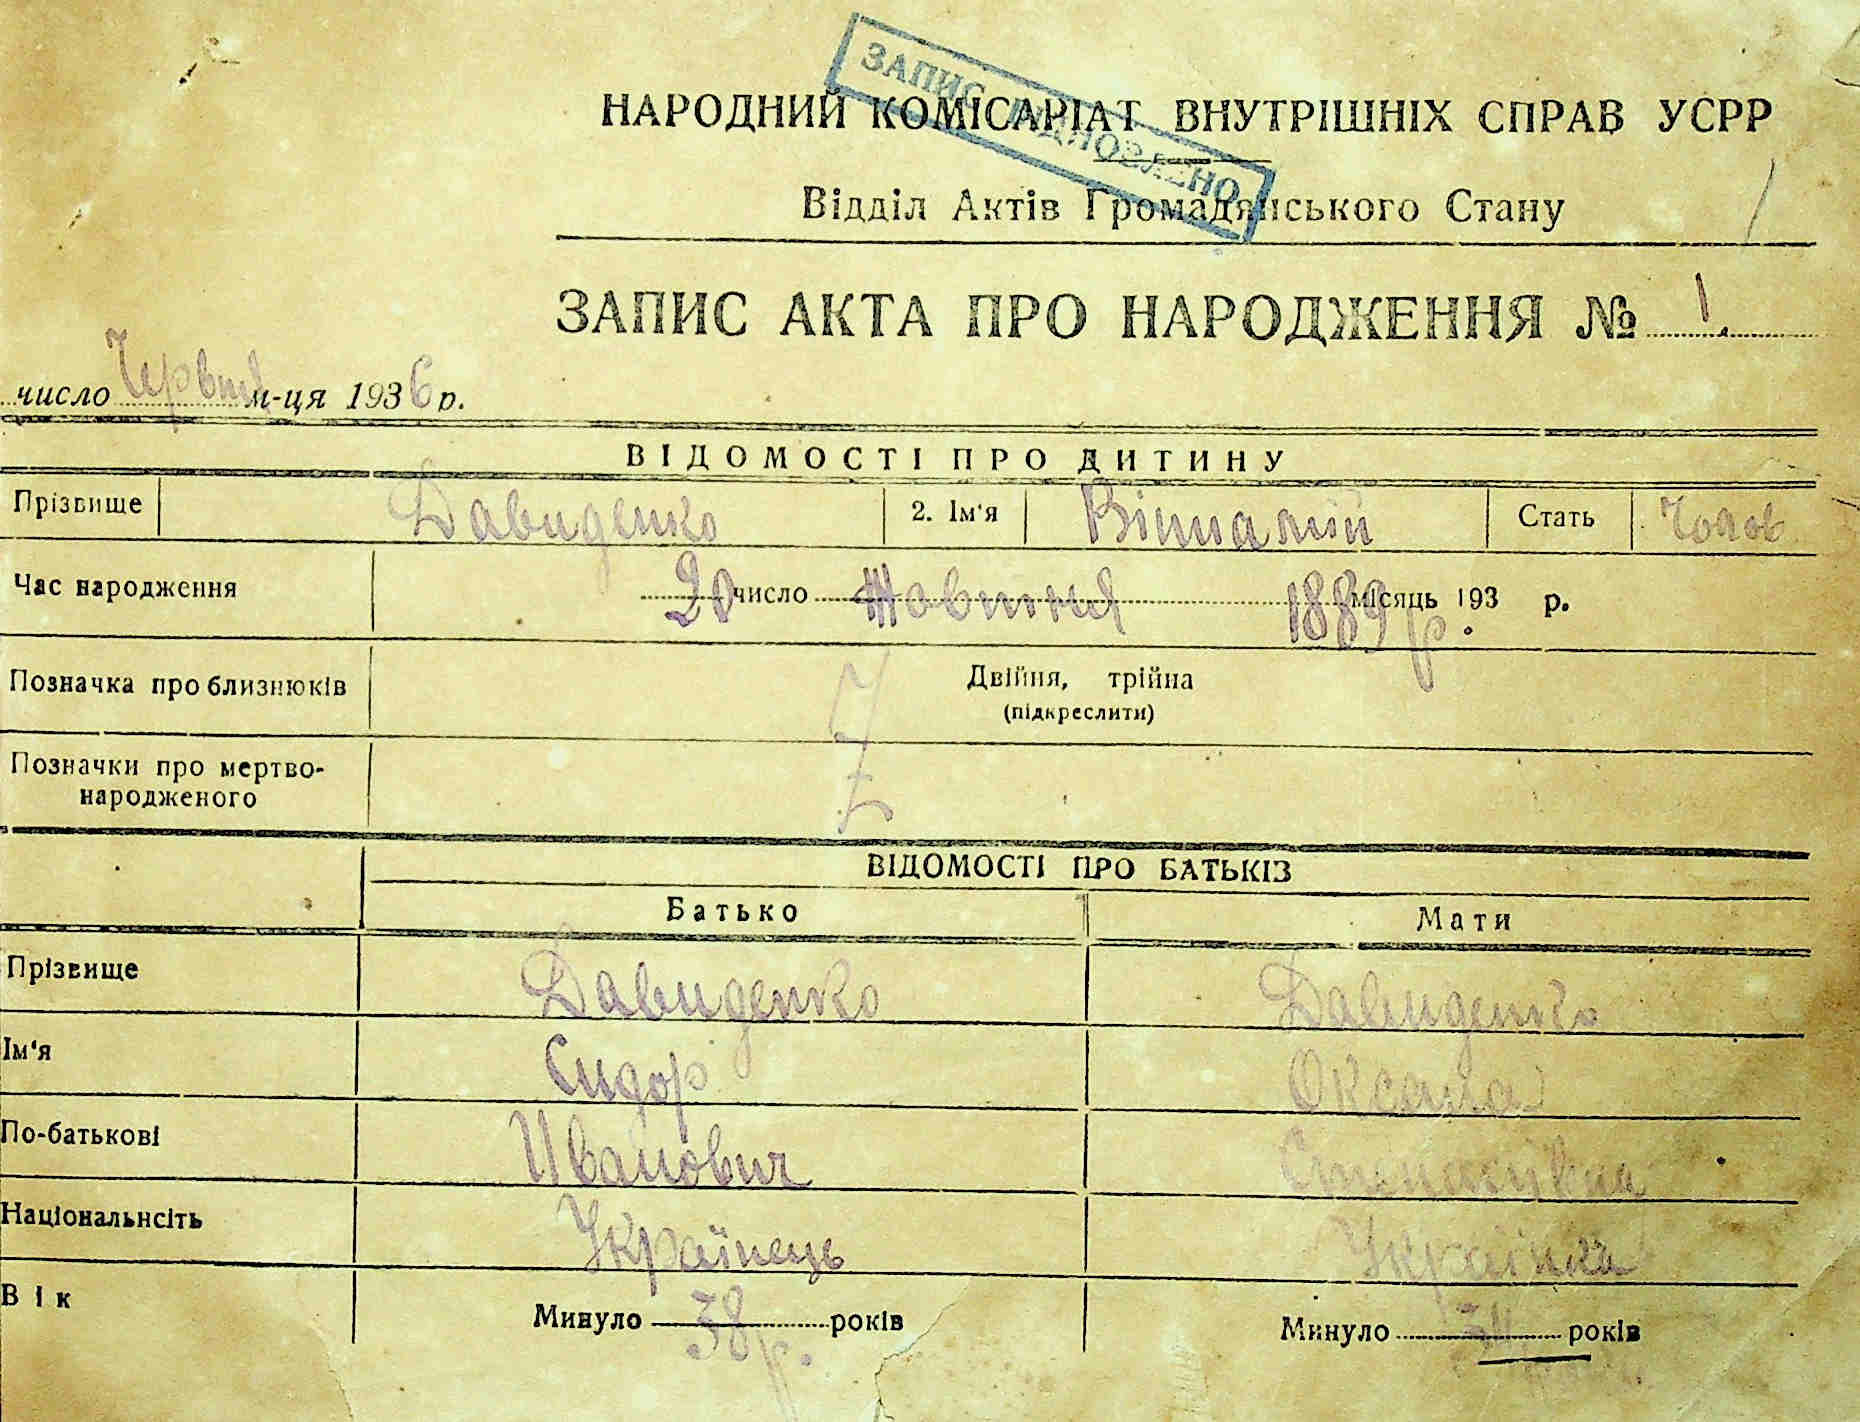 ЗАПИС ВІДНОВЛЕНО
НАРОДНИЙ КОМІСАРІАТ ВНУТРІШНІХ СПРАВ УСРР
Відділ Актів Громадянського Стану
ЗАПИС АКТА ПРО НАРОДЖЕННЯ № 1.
число Червня м-ця 1936 р.
ВІДОМОСТІ ПРО ДИТИНУ
Прізвище Давиденко 2. Ім'я Віталій Стать Чолов
Час народження 20 число Жовтня 1889 р. місяць 193 р.
Позначка про близнюків Двійня, трійна
(підкреслити)
Позначки про мертво-
народженого
ВІДОМОСТІ ПРО БАТЬКІЗ
Батько Мати
Прізвище Давиденко Давиденко
Ім'я Сидор Оксана
По-батькові Иванович Степанівна
Національнсіть Українець Українка
Вік Минуло 38 р. років Минуло років